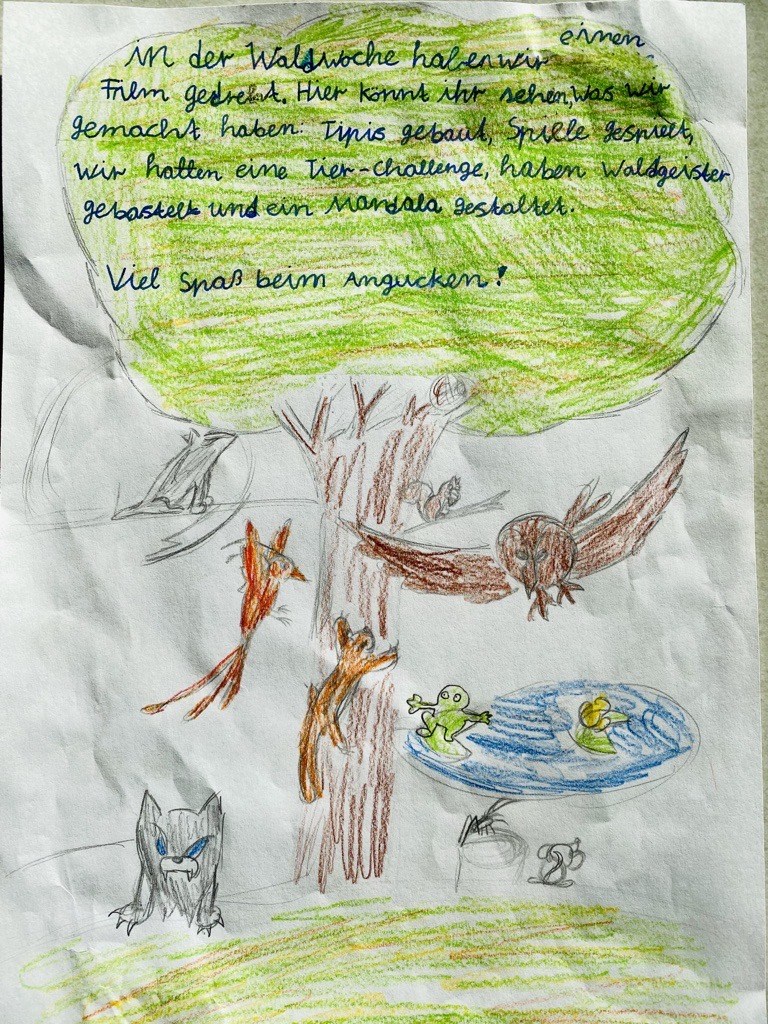 in der Waldwoche haben wir einen
Film gedreht. Hier könnt ihr sehen, was wir
gemacht haben: Tipis gebaut, Spille gespielt,
wir hatten eine Tier-challenge, haben Waldgeister
gebastelt und ein Mandala gestaltet.
Viel Spaß beim Angucken!